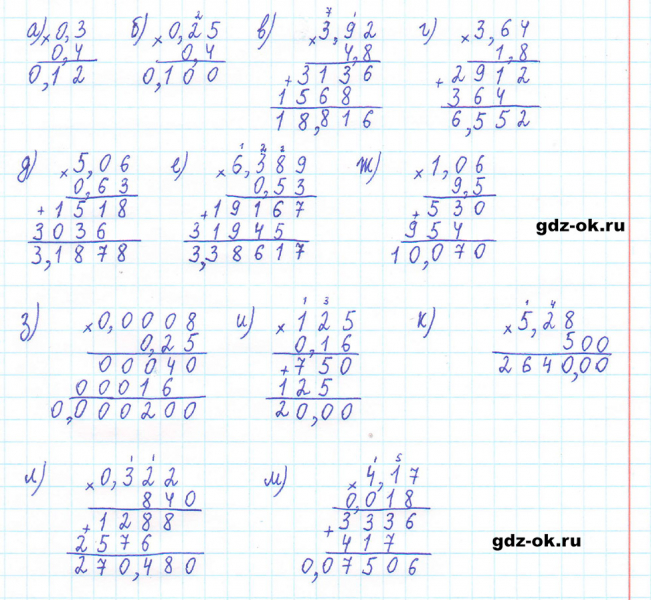 а) ×0,3
0,4
0,12
б) ×0,25
0,4
0,100
в) ×3,92
4,8
+3136
1568
18,816
г) ×3,64
1,8
+2912
364
6,552
д) ×5,06
0,63
+1518
3036
3,1878
е) ×6,389
0,53
+19167
31945
3,38617
ж) ×1,06
9,5
+530
954
10,070
gdz-ok.ru
з) ×0,0008
0,25
00040
00016
0,000200
и) ×125
0,16
+750
125
20,00
к) ×5,28
500
2640,00
л) ×0,322
840
+1288
2576
270,480
м) ×4,17
0,018
+3336
417
0,07506
gdz-ok.ru